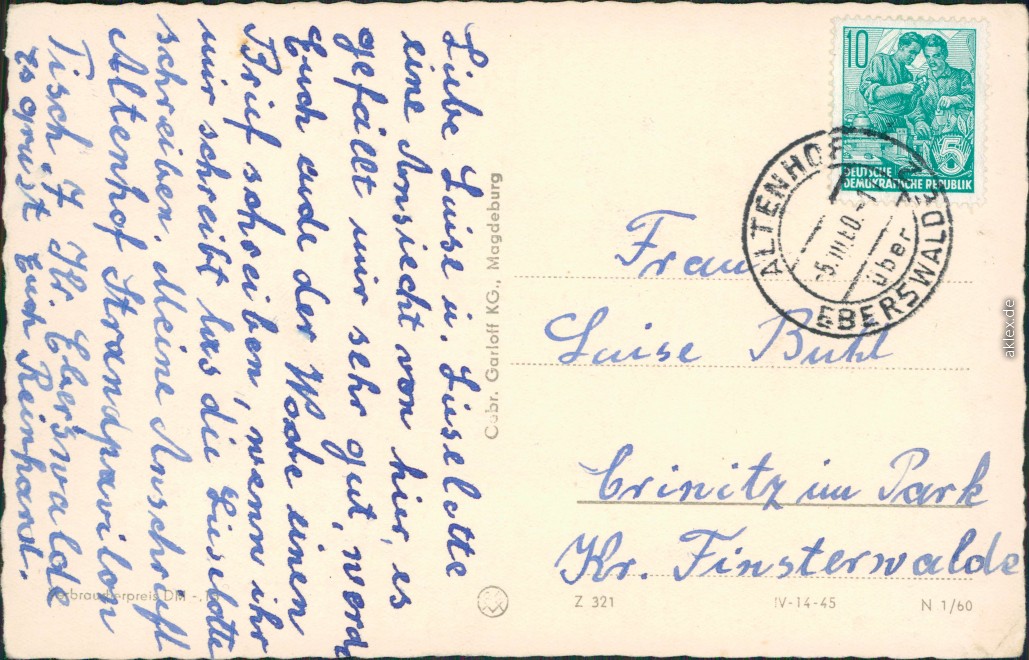 Liebe Luise u. Liuselotte
eine Ansicht von hier, es
gefällt mir sehr gut, werd
Euch ende der Woche einen
Brief schreiben, wenn ihr
mir schreibt las die Liuselotte
schreiben. Meine Anschrift
Altenhof Strandpavilon
Tisch 7 Kr. Eberswalde
Es grüst Euch Reinhard.
Verbraucherpreis DM -,
Gebr. Garloff KG., Magdeburg
10
5
DEUTSCHE
DEMOKRATISCHE REPUBLIK
ALTENHOF
über
EBERSWALDE
-5.III.60.-
Frau
Luise Buhl
Crinitz im Park
Kr. Finsterwalde
Z 321 IV-14-45 N 1/60
aklex.de